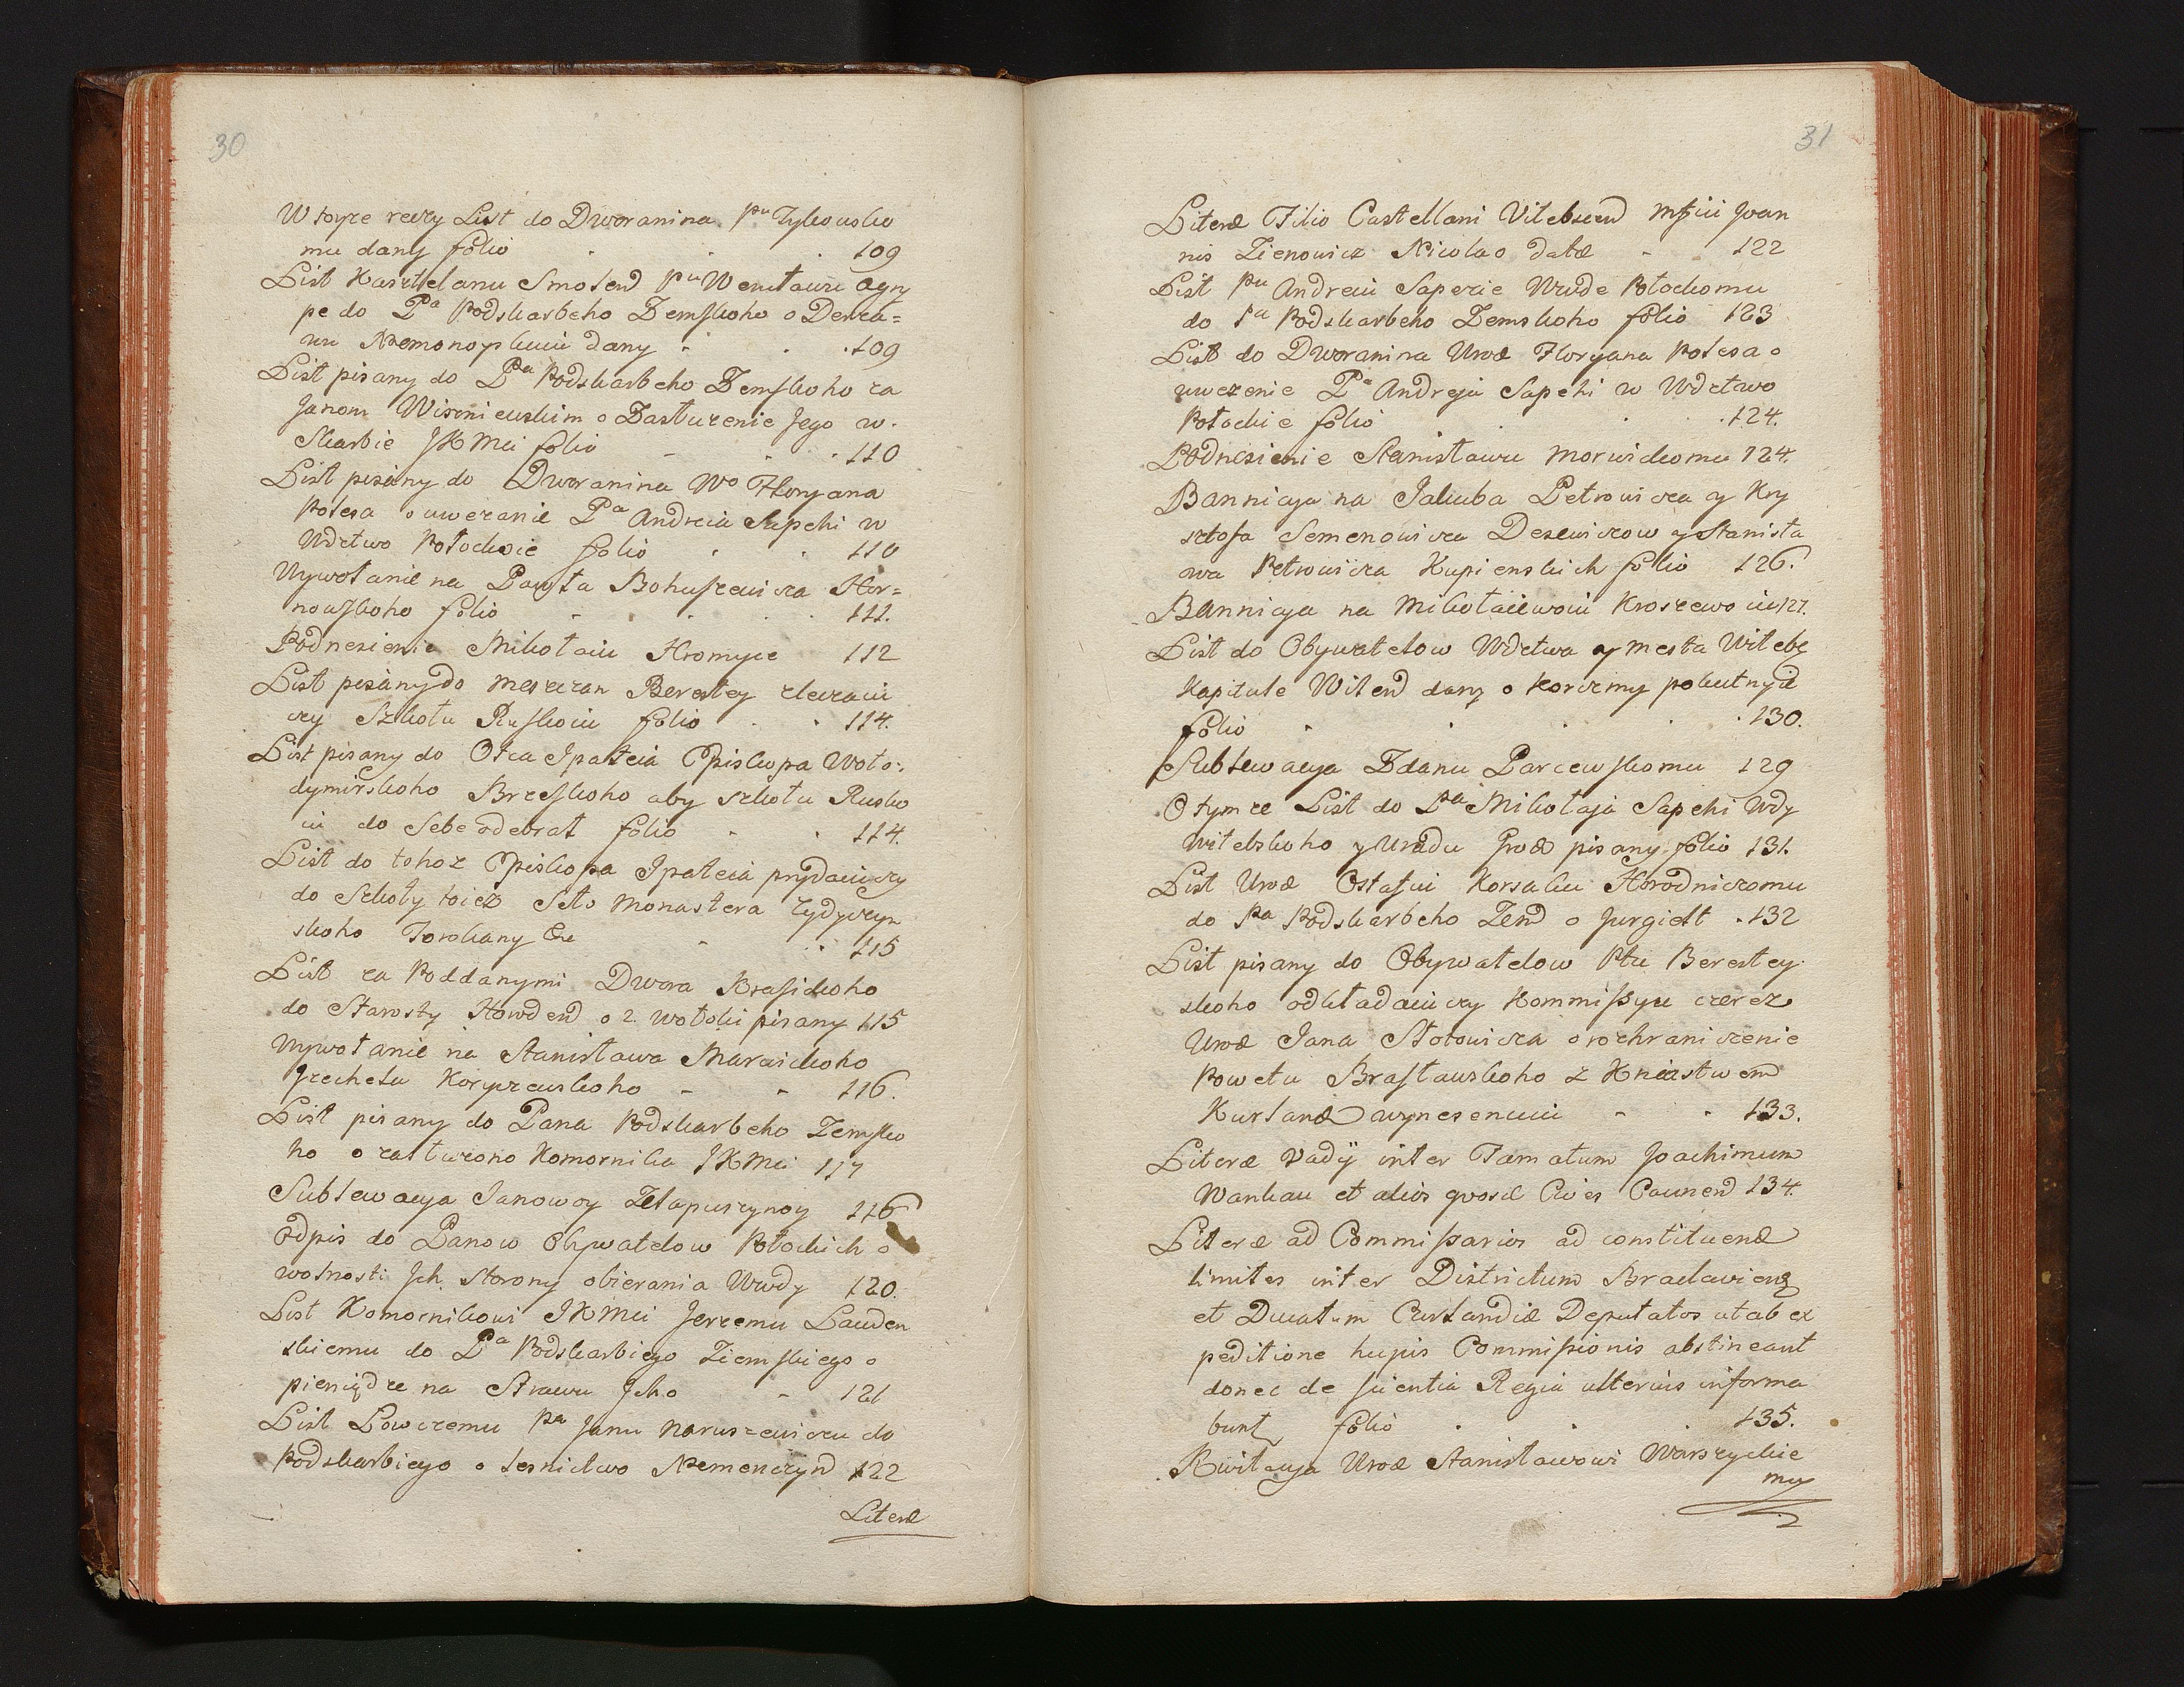 30
W toyze reczy List do Dworanina Pu Tyszkowsko
mu dany folio 109
List Kasztelanu Smolend Pu Wencławu Agry
pe do Pa Podskarbeho Zemskoho o Derża=
wu Nemonoyskuiu dany 109
List pisany do Pa Podskarbeho Zemskoho za
Janom Wiszniewskim o Zasłużenie Jego w
Skarbie JKMci folio 110
List pisany do Dworanina Wo Floryana
Potesa o uwezanie Pa Andreia Sapehi w
Wdztwo Połockoie folio 110
Wywołanie na Pawła Bohuszewicza Hor=
nowskoho folio 111.
Podnesienie Mikołaiu Hromyce 112
List pisany do meszczan Berestey zleczaiu
czy Szkołu Ruskoiu folio 114.
List pisany do Otca Ipateia Episkopa Woło:
dymirskoho Brzeskoho aby szkołu Rusko
iu do Sebe odebrał folio 114.
List do tohoz Episkopa Ipateia prydaiuczy
do Szkoły toież Seło Monastera Zydyczyn
skoho Torokany &c 115
List za Poddanymi Dwora Krasickoho
do Starosty Howdend o 2 wołoki pisany 115
Wywołanie na Stanisława Marcickoho
Grechela Koryzewskoho 116.
List pisany do Pana Podskarbeho Zemsko
ho o zasłużono Komornika JKMci 117
Sublewacya Janowoy Złapuszynoy 116
Odpis do Panow Obywatelow Połockich o
wolnosti Jch Storony obierania Wwdy 120.
List Komornikowi JKMci Jerzemu Lauden
skiemu do Pa Podskarbiego Ziemskiego o
pieniądze na Strawu Jeho 121
List Łowczemu Pa Janu Naruszewiczu do
Podskarbiego o Lesnictwo Nemenczynd 122
Literæ
31
Literæ Filio Castellani Vitebscend Mgfici Joan
nis Zienowicz Nicolao datæ 122
List Pu Andreiu Sapezie Wwde Połockomu
do Pa Podskarbeho Zemskoho folio 123
List do Dworanina Urod Floryana Potesa o
uwezenie Pa Andreja Sapehi w Wdztwo
Połockie folio 124.
Podnesienie Stanisławu Morwickomu 124.
Bannicya na Jakuba Petrowicza y Kry
sztofa Semenowicza Deszewiczow y Stanisła
wa Petrowicza Kupienskich folio 126.
Bannicya na Mikołaiewoiu Kroszewoiu 127.
List do Obywatelow Wdztwa y Mesta Witebs
Kapitule Wilend dany o Korczmy pokutnyie
folio 130.
Sublewacya Zdanu Parcewskomu 129
O tymze List do Pa Mikołaja Sapehi Wdy
Witebskoho y Uradu Grod pisany folio 131.
List Urod Ostafiu Korsaku Horodniczomu
do Pa Podskarbeho Zend o Jurgielt 132
List pisany do Obywatelow Ptu Berestey
skoho odkładaiuczy Kommissyu czerez
Urod Jana Stotowicza o rozhraniczenie
Powetu Brasławskoho z Kniastwem
Kurland wynesenuiu 133.
Literæ vadij inter Famatum Joachimum
Wankau et alios quosd Cives Caunend 134.
Literæ ad Commissarios ad constituend
limites inter Districtum Braclaviens
et Ducatum Curlandiæ Deputatos ut ab ex
peditione hujus Commissionis abstineant
donec de scientia Regia ulterius informa
bunt folio 135.
Kwitacya Urod Stanisławowi Warszyckie
mu